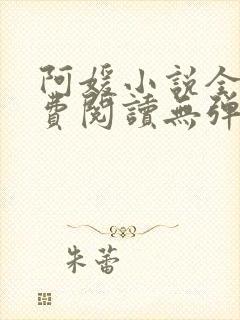 阿媛小說全
費閱讀無彈
朱蕾